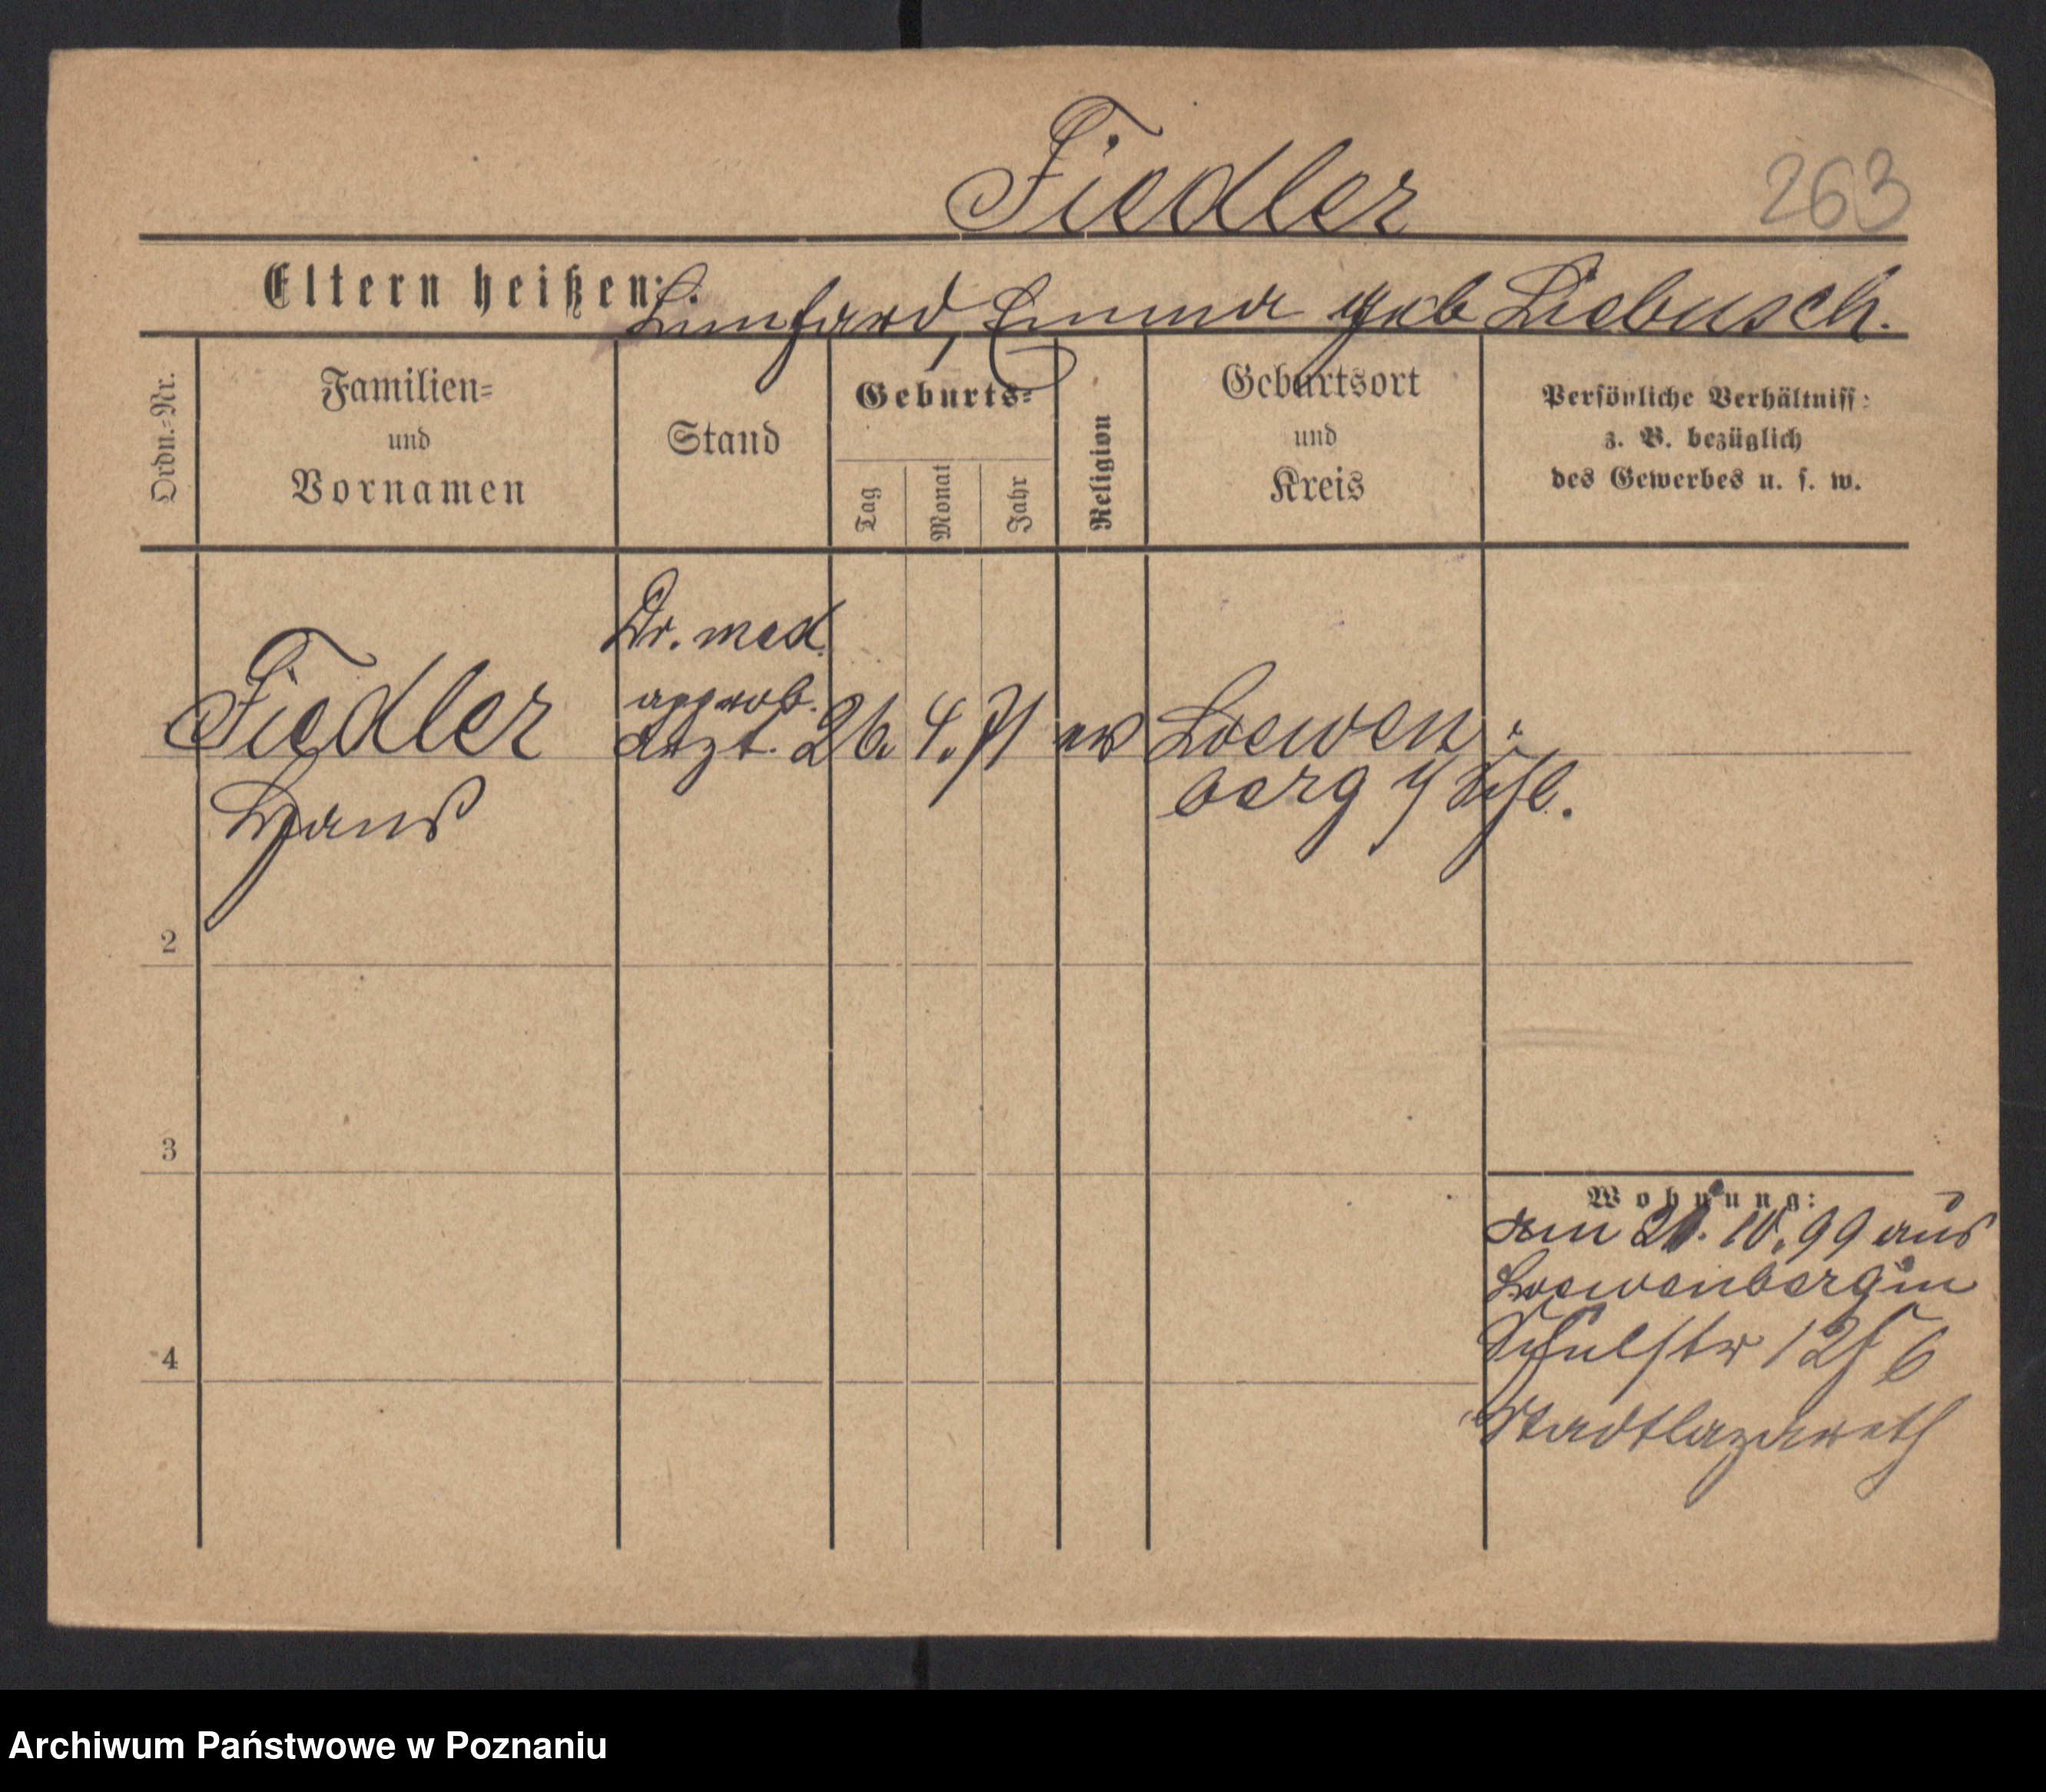 Fiedler
263
Eltern heißen: Lienhard, Emma geb Liebusch.
Ordn.=Nr.
Familien=
und
Vornamen
Stand
Geburts=
Tag
Monat
Jahr
Religion
Geburtsort
und
Kreis
Persönliche Verhältniss:
z. B. bezüglich
des Gewerbes u. s. w.
Fiedler
Hans
Dr. med.
approb.
Arzt.
26. 4. 71
ev
Loewen-
berg i/ Schl.
2
3
4
Wohnung:
am 20. 10. 99 aus
Loewenberg in
Schulstr
Stadtlazareth
Archiwum Państwowe w Poznaniu